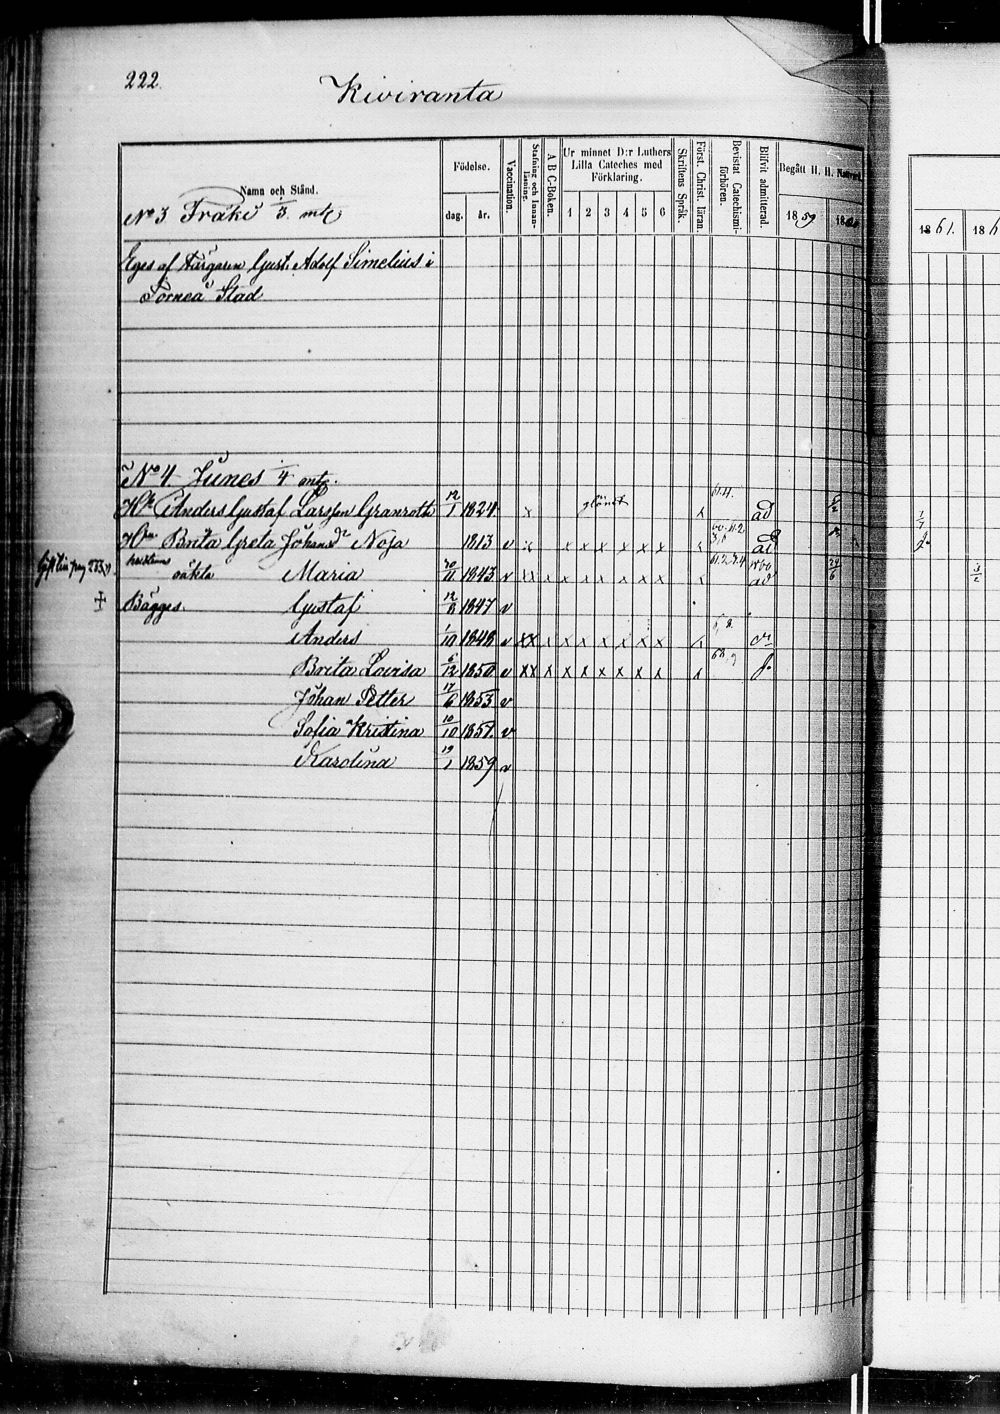 222.
Kiviranta
Namn och Stånd.
Födelse.
dag. år.
Vaccination.
Stafning och Innanläsning.
A B C-Boken.
Ur minnet D:r Luthers Lilla Cateches med Förklaring.
1 2 3 4 5 6
Skriftens Språk.
Först. Christ. läran.
Bevistat Catechismiförhören.
Blifvit admitterad.
Begått H. H. Nattvard.
1859 1860
1861. 186
No 3 Fraki 1/3 mtl
Eges af Färgaren Gust. Adolf Simelius i
Torneå Stad
No 4 Junes 1/4 mtl.
Anders Gustaf Larsson Granroth 12/1 1824 x glömt x ad
Brita Greta Johansdr Noja 1813 v x x x x x x x
oäkta Maria 20/11 1843 v x x x x x x ad 24/6
Bägges Gustaf 12/8 1847 v
Anders 1/10 1848 v xx x x x x x x x
Brita Lovisa 6/12 1850 v xx x x x x x x x
Johan Petter 17/6 1853 v
Sofia Kristina 10/10 1857. v
Karolina 19/1 1859 v